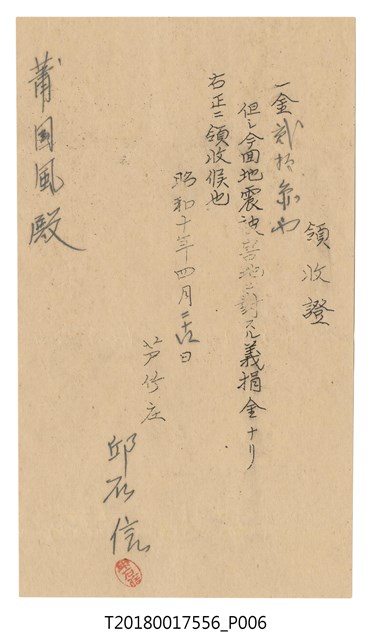 領收證
一金貳拾也
但シ今回地震被害地ニ對スル義捐金ナリ
右正ニ領收候也
昭和十年四月 日
芦竹庄
邱石信
莆国風殿
T20180017556_P006